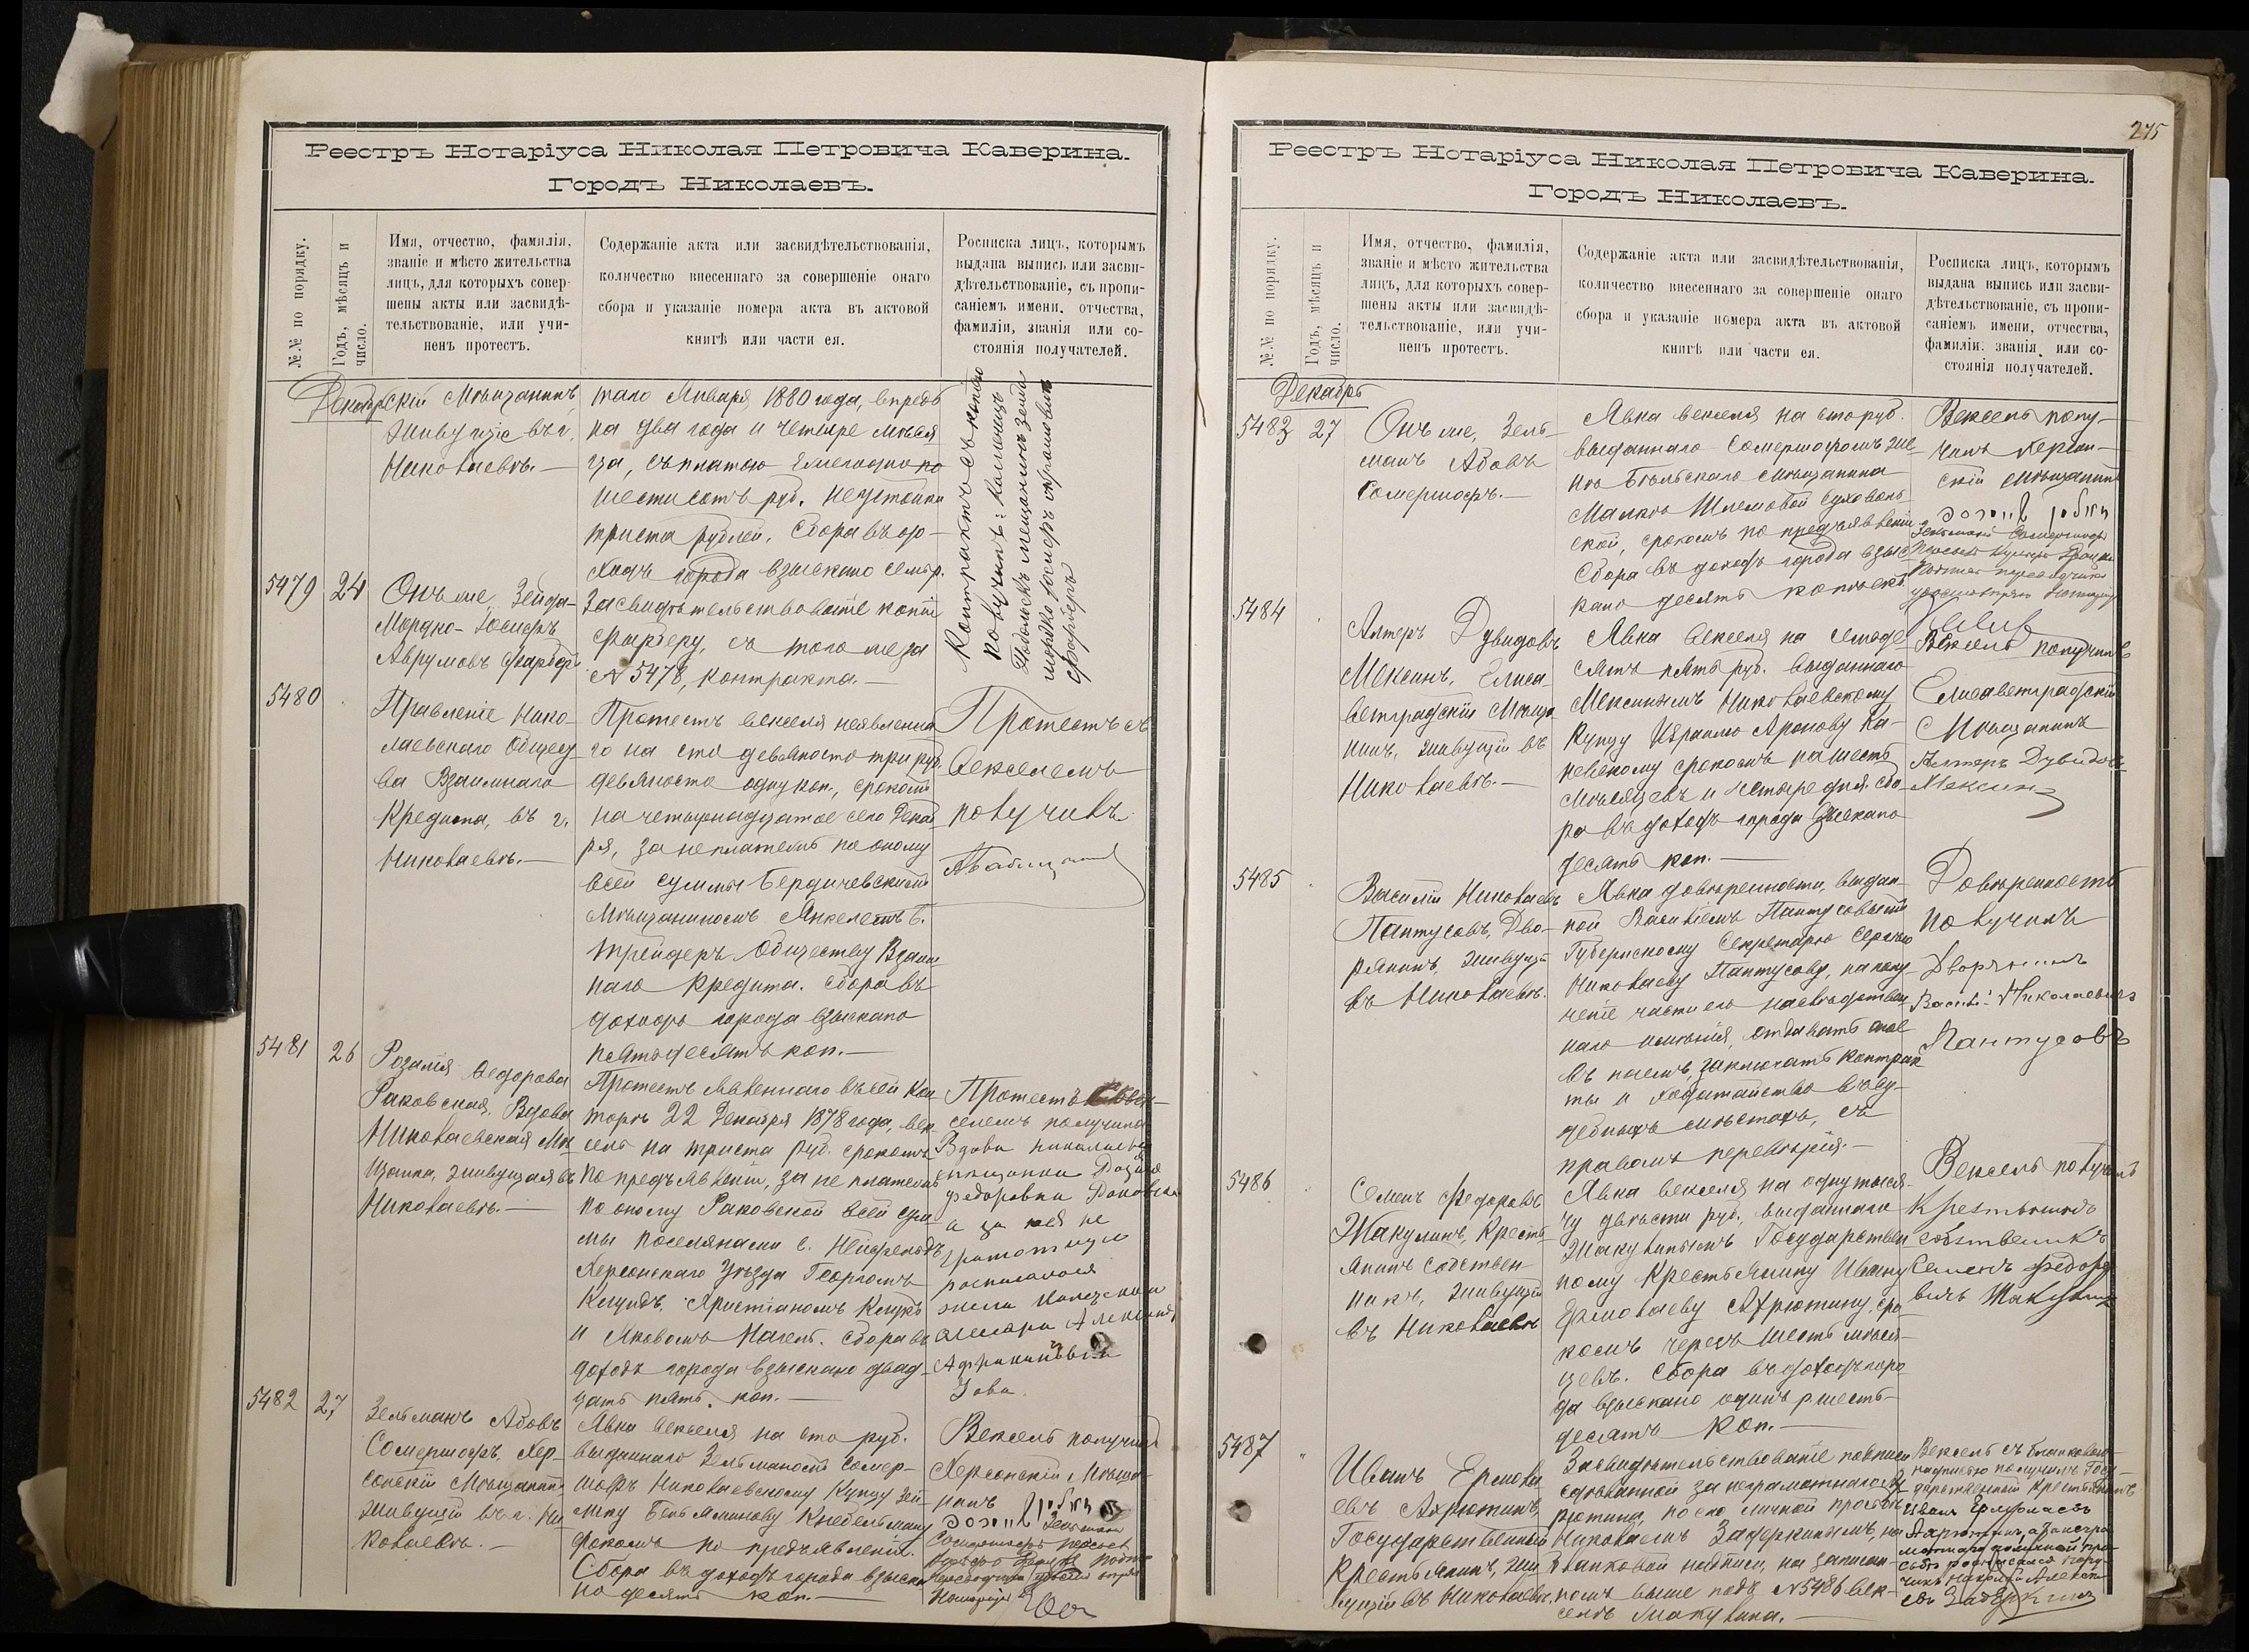 Реестръ Нотаріуса Николая Петровича Каверина.
Городъ Николаевъ.
№.№ по порядку.
Годъ, мѣсяцъ и
число.
Имя, отчество, фамилія,
званіе и мѣсто жительства
лицъ, для которыхъ совер-
шены акты или засвидѣ-
тельствованіе, или учи-
ненъ протестъ.
Содержаніе акта или засвидѣтельствованія,
количество внесеннаго за совершеніе онаго
сбора и указаніе номера акта въ актовой
книгѣ или части ея.
Росписка лицъ, которымъ
выдана выпись или засви-
дѣтельствованіе, съ пропи-
саніемъ имени, отчества,
фамиліи, званія или со-
стоянія получателей.
Декабрь
скій Мѣщанинъ,
живущіе въ г.
Николаевѣ.—
таго Января 1880 года, впредь
на два года и четыре мѣся
ца, съ платою ежегодно по
шестисотъ руб. неустойки
триста рублей. Сбора въ до-
ходъ города взыскано семь р.
Контрактъ съ копіею
получилъ: Каменецъ
Подольскъ мещанинъ Зейда
мордко Іосифъ Абрамовичъ
Фарберъ
5479
24
Онъ же, Зейда-
Мордко-Іосифъ
Аврумовъ Фарбер
Засвидѣтельствованіе копіи
Фарберу, съ того же за
№ 5478, контракта.—
5480
Правленіе Нико-
лаевскаго Общест
ва Взаимнаго
Кредита, въ г.
Николаевѣ.—
Протестъ векселя неявленна
го на сто девяносто три руб.
девяносто одну коп., срокомъ
на четырнадцатое сего Декаб
ря, за неплатежъ по оному
всей суммы Бердичевскимъ
Мѣщаниномъ Янкелемъ Б.
Трейдеръ Обществу Взаим
наго Кредита. Сбора въ
доходъ города взыскано
пятьдесятъ коп.—
Протестъ съ
векселемъ
получилъ
5481
26
Розалія Федорова
Раковская, Вдова
Николаевская Мѣ
щанка, живущая въ
Николаевѣ.—
Протестъ явленнаго въ сей Кон
торѣ 22 Декабря 1878 года, век
сель на триста руб. срокомъ
по предъявленіи, за не платежъ
по оному Раковской всей сум
мы поселянами с. Нейфрейдъ
Херсонскаго Уѣзда Георгомъ
Кундъ, Христіаномъ Кундъ
и Яковомъ Нагель. Сбора въ
доходъ города взыскано двад-
цать пять коп.—
Протестъ съ век-
селемъ получила
Вдова николаевск
мещанка Розалія
федоровна Раковская
а за нея не
грамотную
росписался
5482
27
Зельманъ Абовъ
Сомершофъ, Хер-
сонскій Мѣщанинъ
живущій въ г. Ни
колаевѣ.—
Явка векселя на сто руб.
выданнаго Зельманомъ Сомер-
шофъ Николаевскому Купцу Зей-
лику Беньяминову Кнебельману
срокомъ по предъявленіи.
Сбора въ доходъ города взыска
но десять коп.—
Вексель получилъ
Херсонскій Мѣща-
нинъ
275
Реестръ Нотаріуса Николая Петровича Каверина.
Городъ Николаевъ.
№.№ по порядку.
Годъ, мѣсяцъ и
число.
Имя, отчество, фамилія,
званіе и мѣсто жительства
лицъ, для которыхъ совер-
шены акты или засвидѣ-
тельствованіе, или учи-
ненъ протестъ.
Содержаніе акта или засвидѣтельствованія,
количество внесеннаго за совершеніе онаго
сбора и указаніе номера акта въ актовой
книгѣ или части ея.
Росписка лицъ, которымъ
выдана выпись или засви-
дѣтельствованіе, съ пропи-
саніемъ имени, отчества,
фамиліи, званія или со-
стоянія получателей.
Декабрь
5483
27
Онъ же, Зель-
манъ Абовъ
Сомершофъ.—
Явка векселя на сто руб.
выданнаго Сомершофомъ же
Бѣльскаго Мѣщанина
Малкѣ Шлемовой Суховоль-
ской, срокомъ по предъявленіи
Сбора въ доходъ города взыс
кано десять копѣекъ.
Вексель полу-
чилъ Херсон-
скій Мѣщанинъ
5484
Алтеръ Дувидовъ
Мексинъ, Елиса-
ветградскій Мѣща
нинъ, живущій въ
Николаевѣ.—
Явка векселя на семьде
сятъ пять руб. выданнаго
Мексинымъ Николаевскому
Купцу Израилю Аронову Ка-
невскому срокомъ на шесть
мѣсяцевъ и четыре дня. Сбо-
ра въ доходъ города взыскано
десять коп.—
Вексель получилъ
Елисаветградскій
Мѣщанинъ
Алтеръ Дувидовъ
Мексинъ
5485
Василій Николаевъ
Пантусовъ, Дво-
рянинъ, живущій
въ Николаевѣ.
Явка довѣренности, выдан-
ной Василіемъ Пантусовымъ
Губернскому Секретарю Сергѣю
Николаеву Пантусову, на полу-
ченіе части его наслѣдствен
наго имѣнія, отдавать оное
въ наемъ, заключать контрак
ты и ходатайство въ су-
дебныхъ мѣстахъ, съ
правомъ передовѣрія.—
Довѣренность
получилъ
Дворянинъ
Василій Николаевичъ
Пантусовъ
5486
Семенъ Федоровъ
Жакулинъ, Кресть-
янинъ Собствен-
никъ, живущій
въ Николаевѣ
Явка векселя на одну тыся-
чу двѣсти руб., выданнаго
Жакулинымъ Государствен
ному Крестьянину Ивану
Ермолаеву Ахрютину, сро
комъ черезъ шесть мѣся-
цевъ. Сбора въ доходъ горо
да взыскано одинъ р. шесть-
десятъ коп.—
Вексель получилъ
Крестьянинъ
собственникъ
Семенъ Федоро
вичъ Жакулинъ
5487
Иванъ Ермола
евъ Ахрютинъ,
Государственный
Крестьянинъ, жи
вущій въ Николаевѣ.
Засвидѣтельствованіе подписи
сдѣланной за неграмотнаго Ах
рютина, по его личной просьбѣ
Николаемъ Задеркинымъ, на
бланковой надписи, на записан-
номъ выше подъ № 5486 век-
селѣ Жакулина.—
Вексель съ бланковою
надписью получилъ Госу-
дарственный Крестьянинъ
Иванъ Ермолаевъ
Ахрютинъ, а за негра-
мотнаго по личной про-
сьбѣ росписался